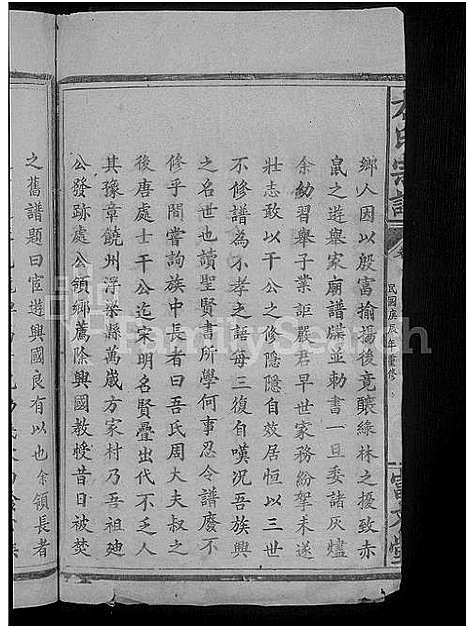 方氏宗譜
民國庚辰年重修
富文堂
鄉人因以殷富揄揚後竟釀綠林之擾致赤
鼠之遊舉家廟譜牒並勅書一旦委諸灰燼
余幼習舉子業詎嚴君早世家務紛挐未遂
壯志敢以干公之修隱隱自效居恒以三世
不修譜為不孝之語毎三復自嘆況吾族興
之名世也少讀聖賢書所學何事忍令譜廢不
修乎間嘗詢族中長者曰吾氏周大夫叔之
後唐處士干公迄宋明名賢疊出代不乏人
其豫章饒州浮梁縣萬歲方家村乃吾祖廸
公發跡處公領鄉薦除興國教授昔日被焚
之舊譜題曰宦遊興國良有以也余領長者
FamilySearch